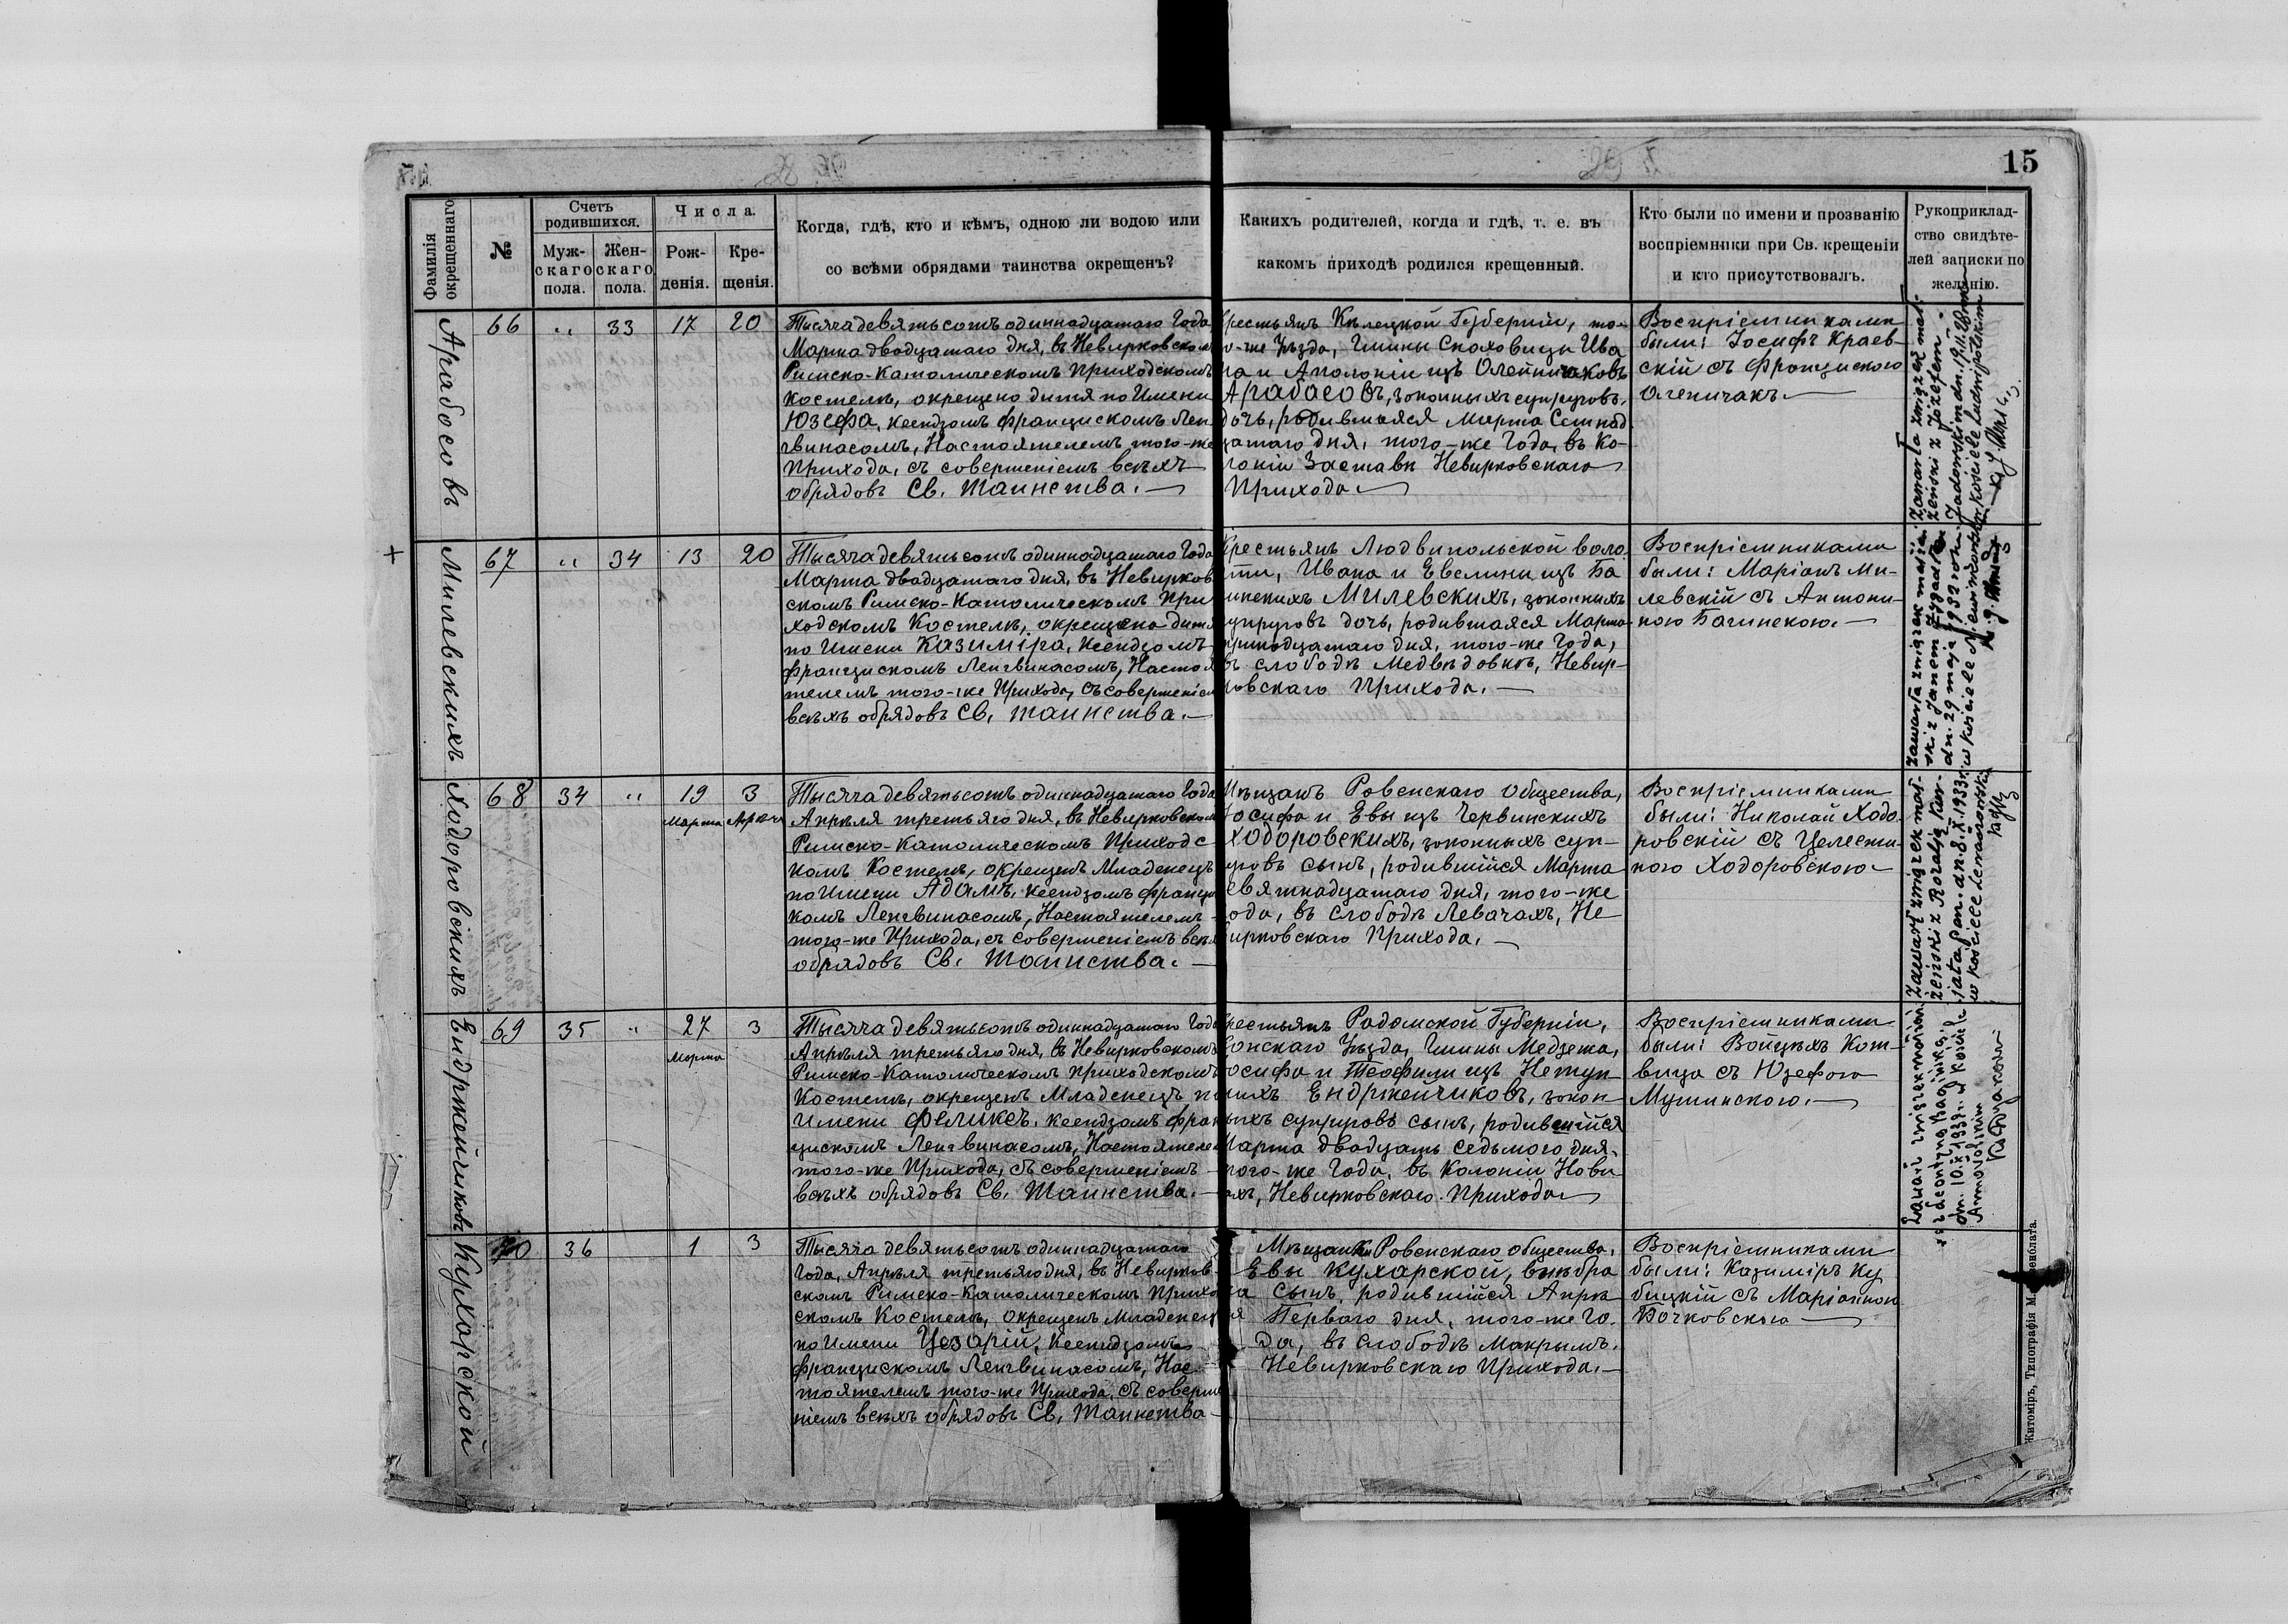 15
Фамилія окрещеннаго
№
Счетъ родившихся.
Муж-
скаго
пола.
Жен-
скаго
пола.
Числа.
Рож-
денія.
Кре-
щенія.
Когда, гдѣ, кто и кѣмъ, одною ли водою или
со всѣми обрядами таинства окрещенъ?
Какихъ родителей, когда и гдѣ, т. е. въ
какомъ приходѣ родился крещенный.
Кто были по имени и прозванію
воспріемники при Св. крещеніи
и кто присутствовалъ.
Рукоприклад-
ство свидѣте-
лей записки по
желанію.
Арабасовъ
66 „ 33 17 20
Тысяча девятьсотъ одиннадцатаго Года
Марта двадцатаго дня, въ Невирковскомъ
Римско-Католическомъ Приходскомъ
костелѣ, окрещено дитя по Имени
Юзефа, ксендзомъ Францискомъ Лен-
гвинасомъ, Настоятелемъ того-же
Прихода, съ совершеніемъ всѣхъ
обрядовъ Св. Таинства.
крестьянъ Кѣлецкой Губерніи, то-
го-же Уѣзда, Гмины Снаховицы Ива
на и Аполоніи изъ Олейничаковъ
Арабасовъ, законныхъ супруговъ.
дочь, родившаяся Марта Семнад
цатаго дня, того-же Года, въ Ко-
лоніи Заставки Невирковскаго
Прихода.
Воспріемниками
были: Іосифъ Краев-
скій съ Францискою
Оленичакъ.
Zawarła związek mał-
żeński z Józefem
Милевскихъ
67 „ 34 13 20
Тысяча девятьсотъ одиннадцатаго Года
Марта двадцатаго дня, въ Невирков
скомъ Римско-Католическомъ При
ходскомъ Костелѣ, окрещено дитя
по Имени Казиміра, Ксендзомъ
Францискомъ Ленгвинасомъ, Настоя
телемъ того-же Прихода, съ совершеніем
всѣхъ обрядовъ Св. таинства.
Крестьянъ Людвипольской воло
сти, Ивана и Евелины изъ Ба
гинскихъ Милевскихъ, законныхъ
супруговъ дочь, родившаяся Марта
тринадцатаго дня, того-же Года,
въ слободѣ Медвѣдовкѣ, Невир-
ковскаго Прихода.
Воспріемниками
были: Маріанъ Ми-
левскій съ Антони-
ною Багинскою.
Zawarła związek małżeń
ski z Janem
dn. 29 maja 1932 roku
w kościele
Ходоровскихъ
68 34 „ 19 3
Марта Апрѣля
Тысяча девятьсотъ одиннадцатаго Года
Апрѣля третьяго дня, въ Невирковском
Римско-Католическомъ Приходс-
комъ Костелѣ, окрещенъ Младенецъ
по Имени Адамъ, ксендзомъ Францис
комъ Ленгвинасомъ, Настоятелемъ
того-же Прихода, съ совершеніемъ всѣх
обрядовъ Св. Таинства.
Мѣщанъ Ровенскаго общества,
Іосифа и Евы изъ Червинскихъ
Ходоровскихъ, законныхъ суп-
руговъ сынъ, родившійся Марта
девятнадцатаго дня, того-же
Года, въ слободѣ Левачахъ, Не
вирковскаго Прихода.
Воспріемниками
были: Николай Ходо
ровскій съ Целести-
ною Ходоровскою
Zawarł związek mał-
żeński z Rozalją
dn. 8.X.1933r.
w kościele
Ендржейчиковъ
69 35 „ 27 3
Марта
Тысяча девятьсотъ одиннадцатаго Года
Апрѣля третьяго дня, въ Невирковскомъ
Римско-Католическомъ Приходскомъ
Костелѣ, окрещенъ Младенецъ по
Имени Феликсъ, ксендзомъ Фран
цискомъ Ленгвинасомъ, Настоятелем
того-же Прихода, съ совершеніемъ
всѣхъ обрядовъ Св. Таинства.
крестьянъ Радомской Губерніи,
Уѣзда, Гмины Медзежа,
Іосифа и Теофили изъ
Ендржейчиковъ, закон-
ныхъ супруговъ сынъ, родившійся
Марта двадцать седьмого дня,
того-же Года, въ Колоніи Нови
нахъ, Невирковскаго Прихода
Воспріемниками
были: Войцѣхъ Кот-
вица съ Юзефою
Мушинскою.
Zawarł związek małżeń
ski z Leontyną
dn. 10.X.1939 r. w kościele
Annowolskim
Кухарской
70 36 1 3
Тысяча девятьсотъ одиннадцатаго
Года, Апрѣля третьяго дня, въ Невирков-
скомъ Римско-Католическомъ Приход
скомъ Костелѣ, окрещенъ Младенецъ
по Имени Цезарій, Ксендзомъ
Францискомъ Ленгвинасомъ, Нас-
тоятелемъ того-же Прихода, съ соверше
ніемъ всѣхъ обрядовъ Св. Таинства
Мѣщанки Ровенскаго общества,
Евы Кухарской, внѣбра
ка Сынъ, родившійся Апрѣ
ля Перваго дня, того-же Го-
да, въ слободѣ Макрымъ,
Невирковскаго Прихода.
Воспріемниками
были: Казиміръ Ку
бицкій съ Маріанною
Бочковскою
Житоміръ, Типографія М.